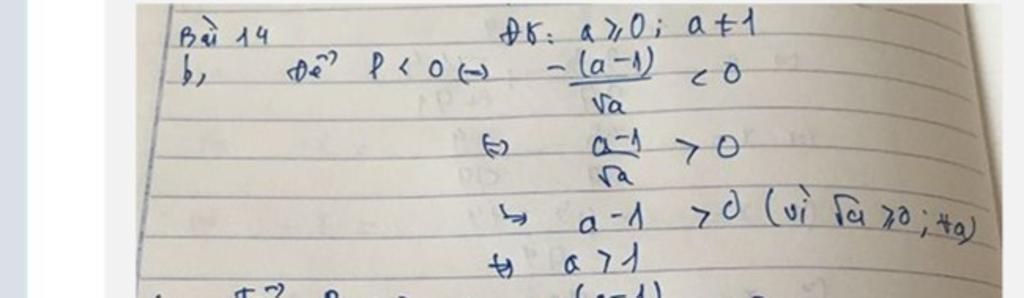 Bài 14 ĐK: a ≥ 0; a ≠ 1
b, Để P < 0 ⇔ -(a-1)/√a < 0
⇔ a-1/√a > 0
⇔ a-1 > 0 (vì √a ≥ 0; ∀a)
⇔ a > 1